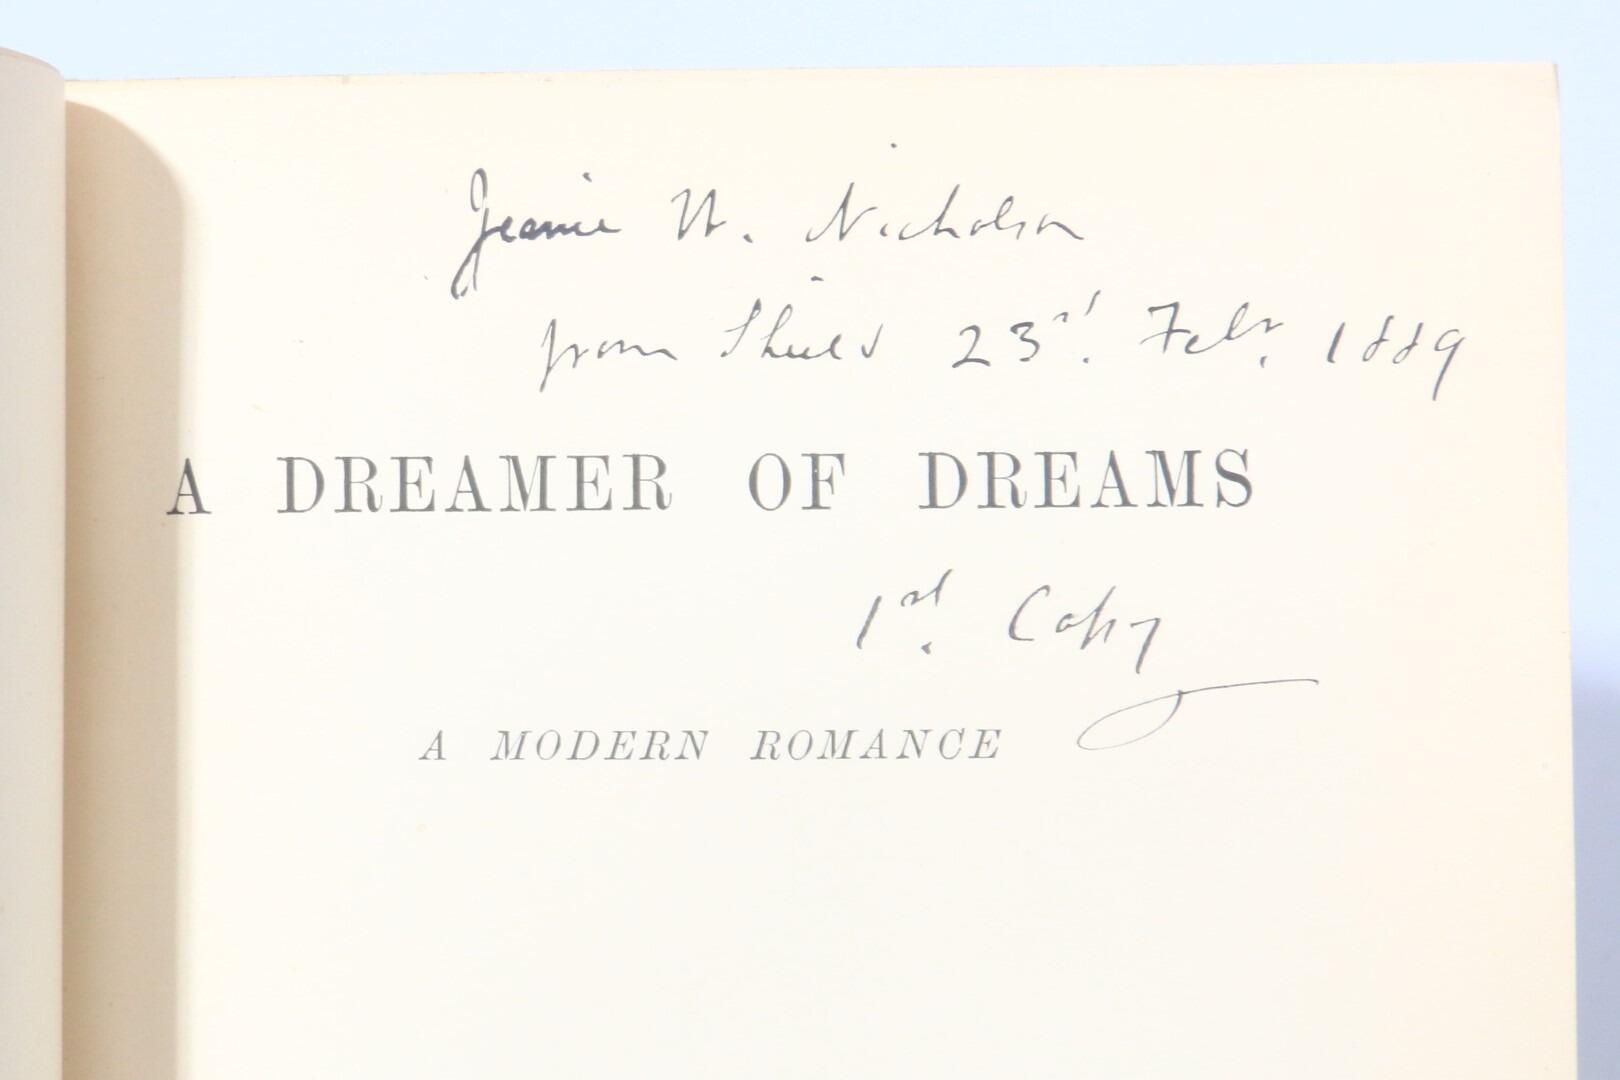 Jeanie W. Nicholson
from Shield 23rd. Febr. 1889
A DREAMER OF DREAMS
1st. Copy
A MODERN ROMANCE